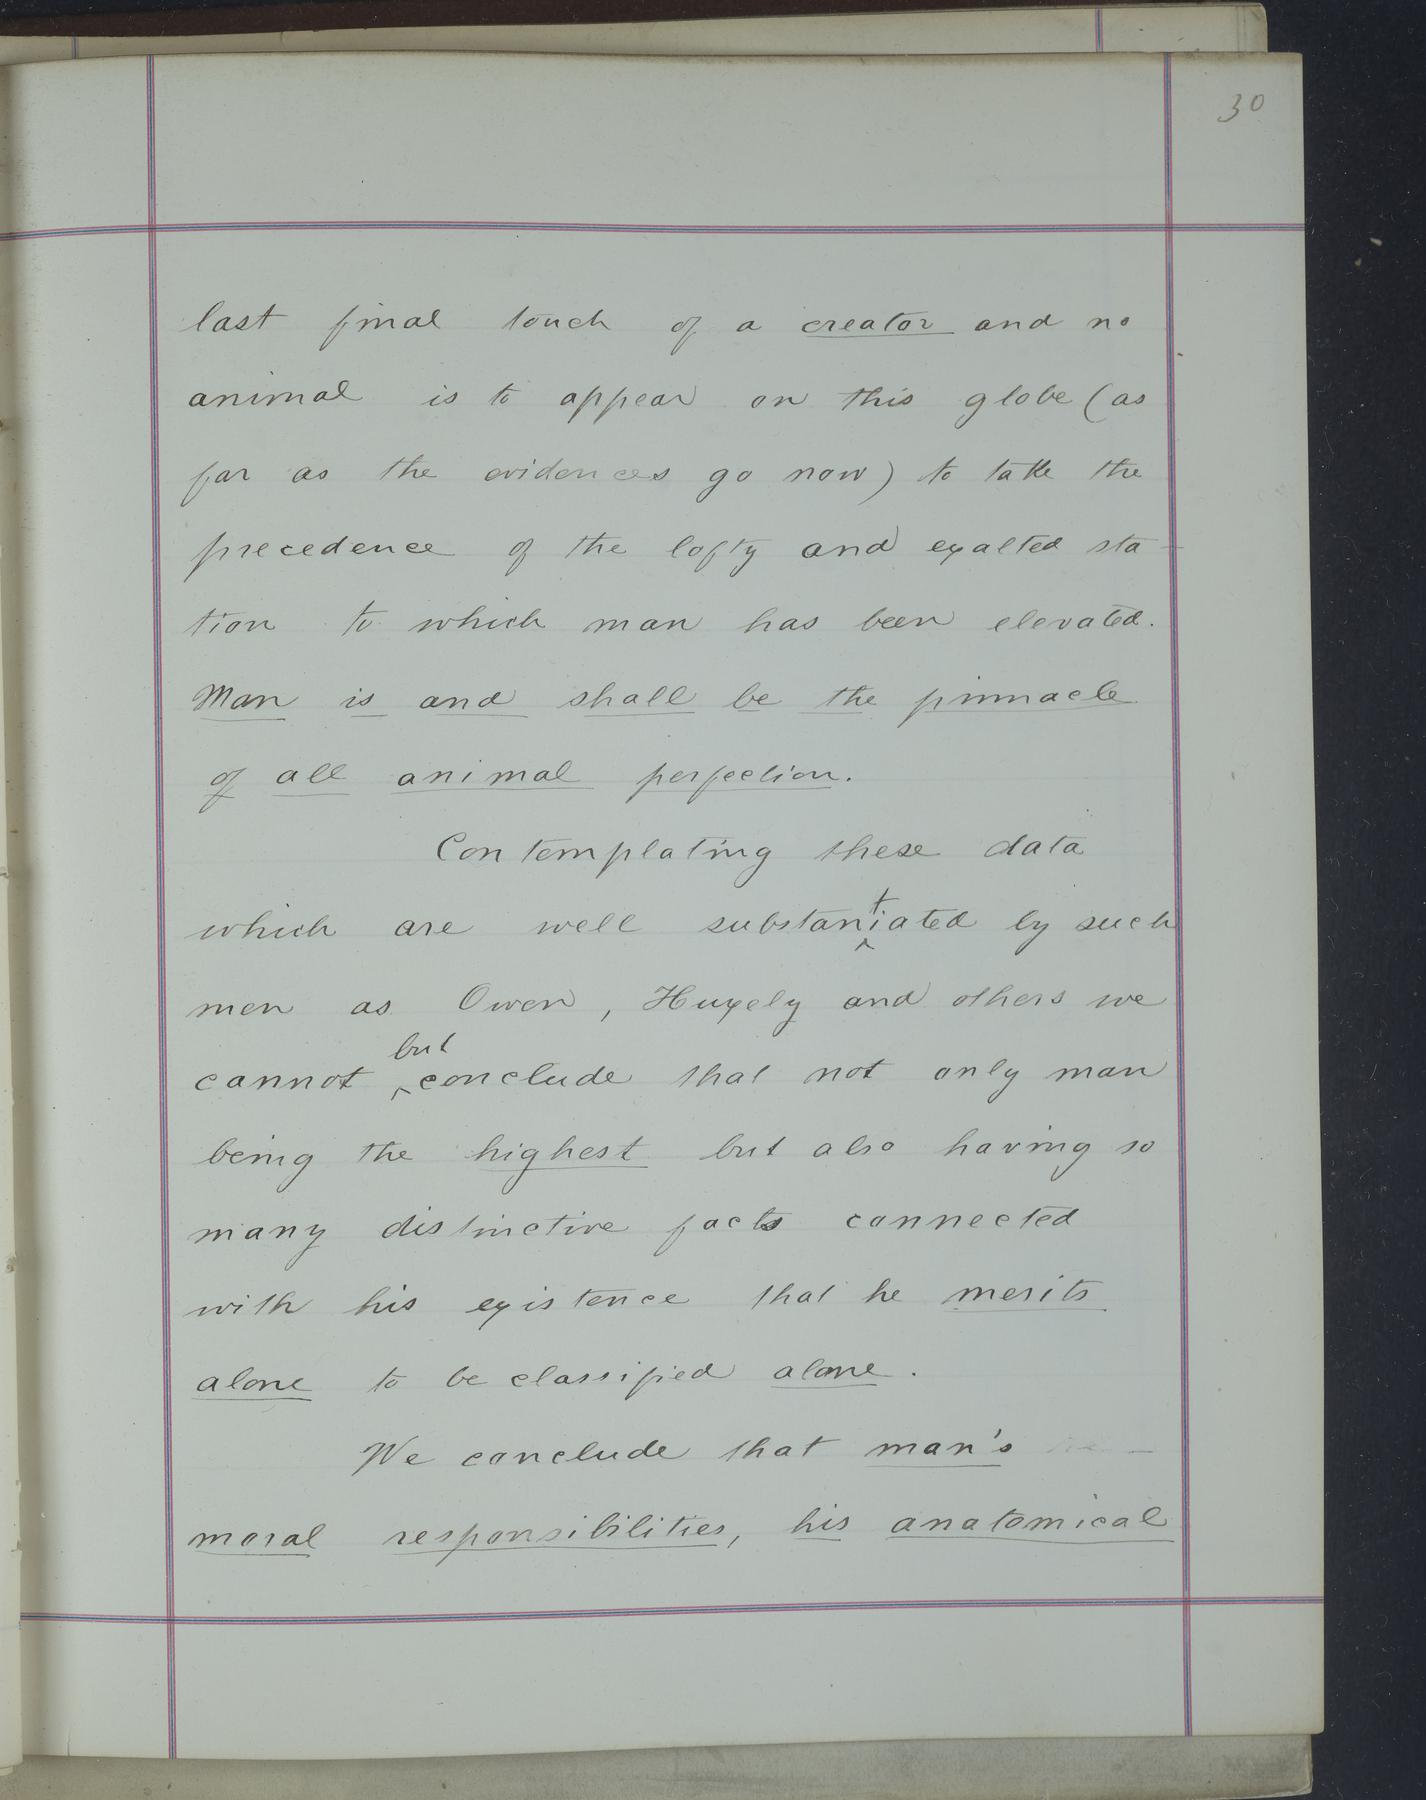 30
last final touch of a creator and no
animal is to appear on this globe (as
far as the evidences go now) to take the
precedence of the lofty and exalted sta-
tion to which man has been elevated.
Man is and shall be the pinnacle
of all animal perfection.
Contemplating these data
which are well substantiated by such
men as Owen, Huxely and others we
cannot but conclude that not only man
being the highest but also having so
many distinctive facts connected
with his existence that he merits
alone to be classified alone.
We conclude that man's
moral responsibilities, his anatomical